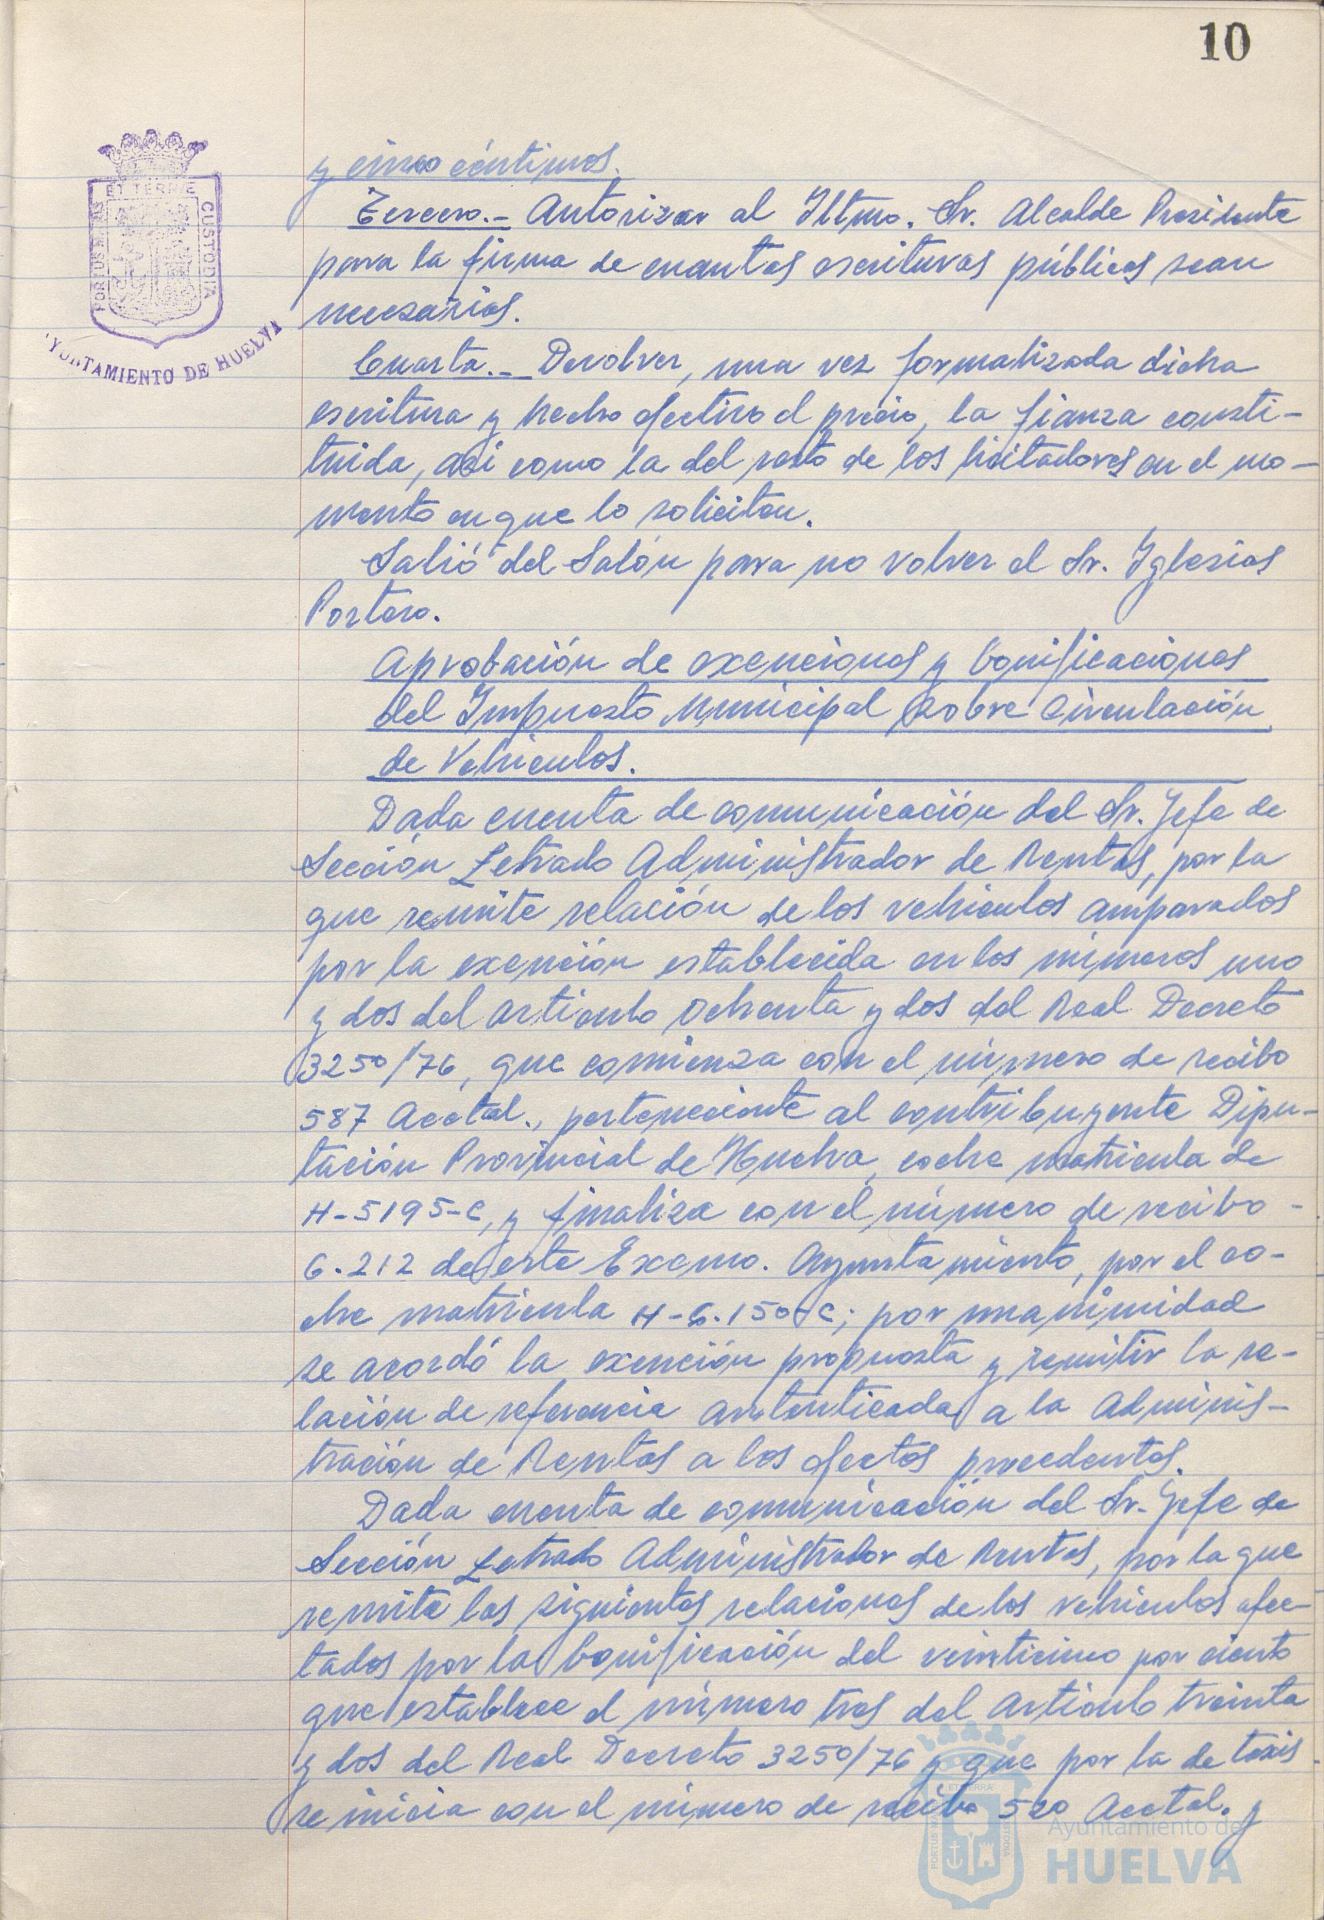 10
ET TERRÆ
PORTUS MARIS
CUSTODIA
AYUNTAMIENTO DE HUELVA
y cinco céntimos.
Tercero.- Autorizar al Iltmo. Sr. Alcalde Presidente
para la firma de cuantas escrituras públicas sean
necesarias.
Cuarta.- Devolver, una vez formalizada dicha
escritura y hecho efectivo el precio, la fianza consti-
tuida, asi como la del resto de los licitadores en el mo-
mento en que lo soliciten.
Salió del Salón para no volver el Sr. Iglesias
Portero.
Aprobación de exenciones y bonificaciones
del Impuesto Municipal sobre Circulación
de Vehiculos.
Dada cuenta de comunicación del Sr. Jefe de
Sección Letrado Administrador de Rentas, por la
que remite relación de los vehiculos amparados
por la exención establecida en los números uno
y dos del articulo ochenta y dos del Real Decreto
3250/76, que comienza con el número de recibo
587 Acctal., perteneciente al contribuyente Dipu-
tación Provincial de Huelva, coche matricula de
H-5195-C, y finaliza con el número de recibo -
6.212 de este Excmo. Ayuntamiento, por el co-
che matricula H-6.150-C; por unanimidad
se acordó la exención propuesta y remitir la re-
lación de referencia autenticada a la Adminis-
tración de Rentas a los efectos procedentes.
Dada cuenta de comunicación del Sr. Jefe de
Sección Letrado Administrador de Rentas, por la que
remite las siguientes relaciones de los vehiculos afec-
tados por la bonificación del veinticinco por ciento
que establece el número tres del Articulo treinta
y dos del Real Decreto 3250/76 y que por la de taxis
se inicia con el número de recibo 520 Acctal. y
Ayuntamiento de
HUELVA